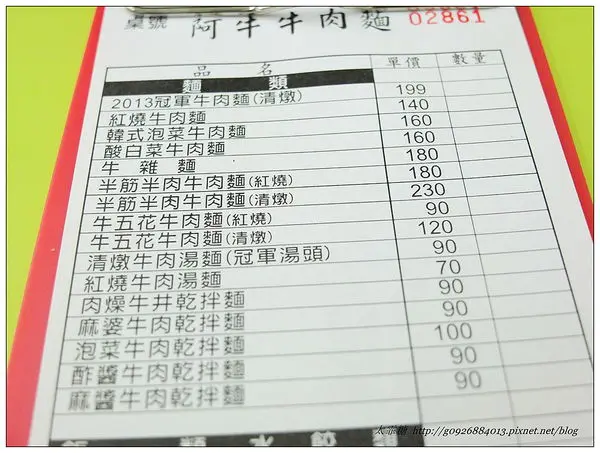 桌號 阿牛牛肉麵 02861
品 名 單價 數量
麵 類
2013冠軍牛肉麵(清燉) 199
紅燒牛肉麵 140
韓式泡菜牛肉麵 160
酸白菜牛肉麵 160
牛 雜 麵 180
半筋半肉牛肉麵(紅燒) 180
半筋半肉牛肉麵(清燉) 230
牛五花牛肉麵(紅燒) 90
牛五花牛肉麵(清燉) 120
清燉牛肉湯麵(冠軍湯頭) 90
紅燒牛肉湯麵 70
肉燥牛井乾拌麵 90
麻婆牛肉乾拌麵 90
泡菜牛肉乾拌麵 100
酢醬牛肉乾拌麵 90
麻醬牛肉乾拌麵 90
http://g0926884013.pixnet.net/blog